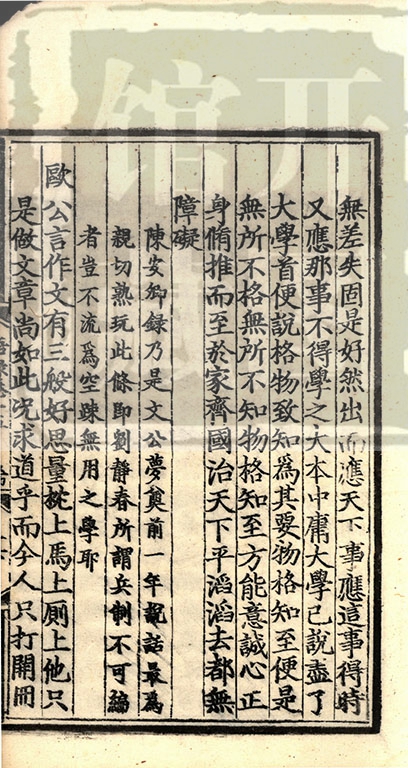 無差失固是好然出而應天下事應這事得時
又應那事不得學之大本中庸大學已說盡了
大學首便說格物致知爲甚要物格知至便是
無所不格無所不知物格知至方能意誠心正
身脩推而至於家齊國治天下平滔滔去都無
障礙
陳安卿録乃是文公夢奠前一年說話最爲
親切熟玩此條即劉靜春所謂兵制不可編
者豈不流爲空踈無用之學耶
歐公言作文有三般好思量枕上馬上厠上他只
是做文章尚如此况求道乎而今人只打開冊